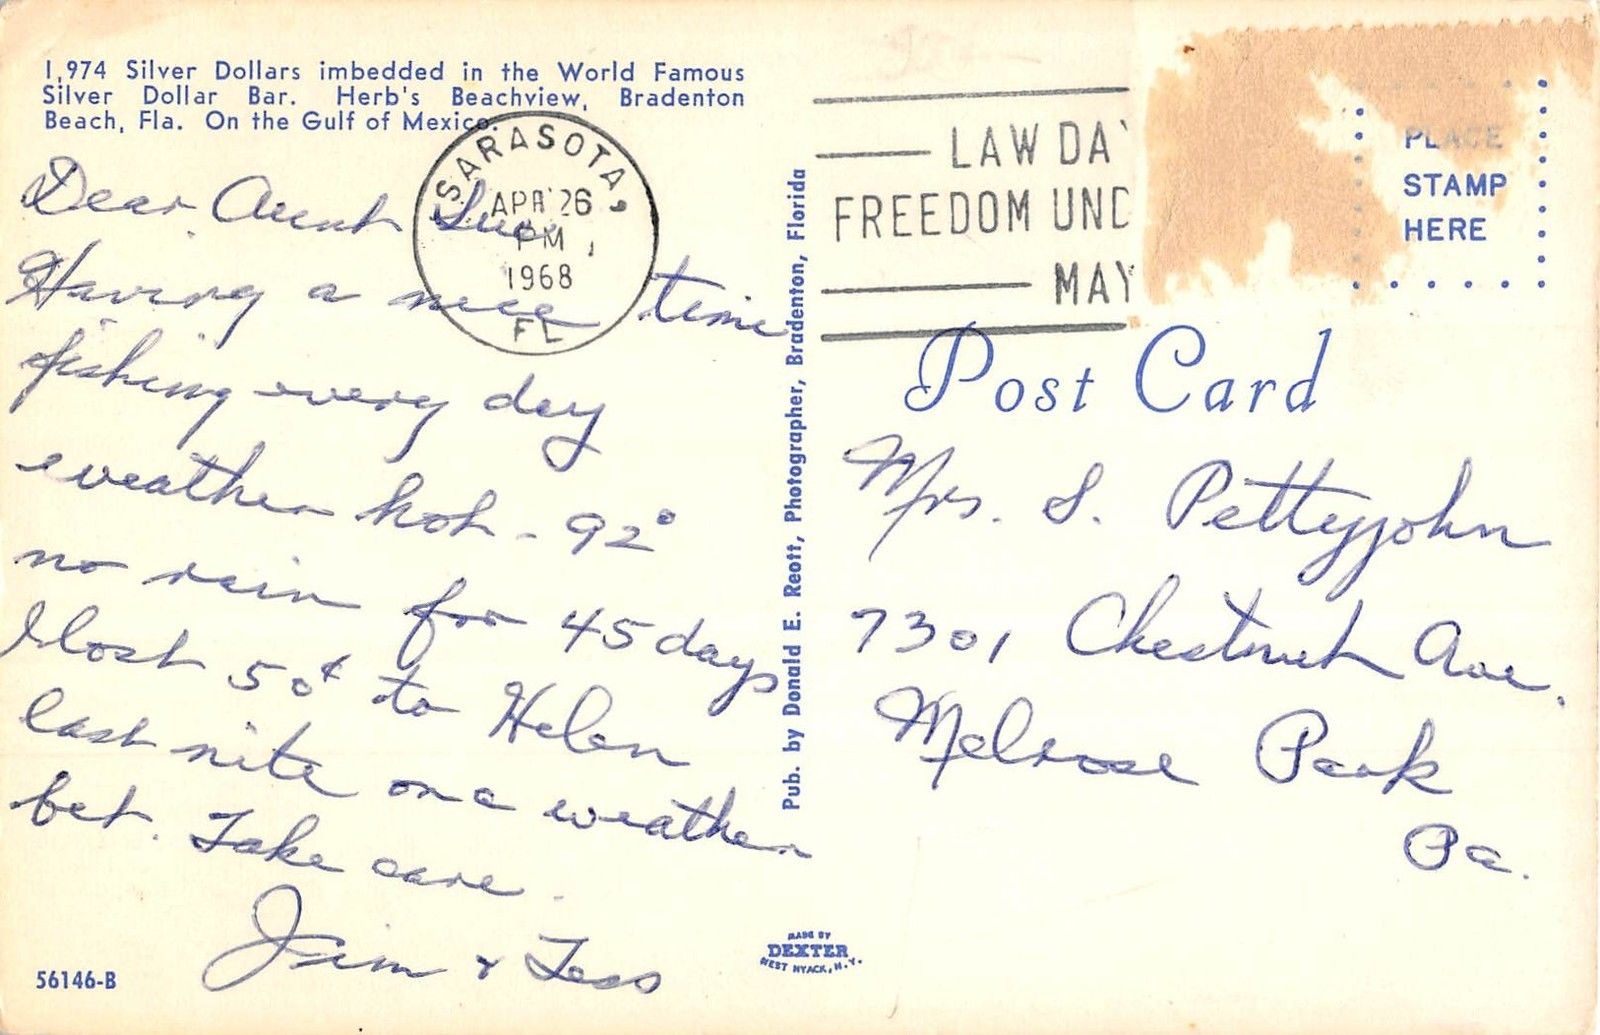 1,974 Silver Dollars imbedded in the World Famous
Silver Dollar Bar. Herb's Beachview, Bradenton
Beach, Fla. On the Gulf of Mexico.
SARASOTA,
APR 26
PM
1968
FL
LAW DAY
FREEDOM UND
MAY
PLACE
STAMP
HERE
Post Card
Dear Aunt Sue
Having a nice time
fishing every day
weather hot - 92°
no rain for 45 days
I lost 50¢ to Helen
last nite on a weather
bet. Take care.
Jim & Tess
Pub. by Donald E. Reott, Photographer, Bradenton, Florida
Mrs. S. Pettyjohn
7301 Chestnut Ave.
Melrose Park
Pa.
MADE BY
DEXTER
WEST NYACK, N.Y.
56146-B